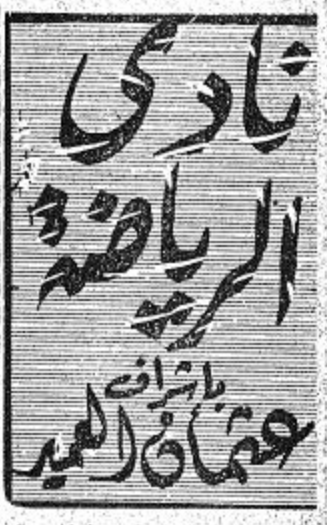 نادى
الرياضة
باشراف
عثمان العميد